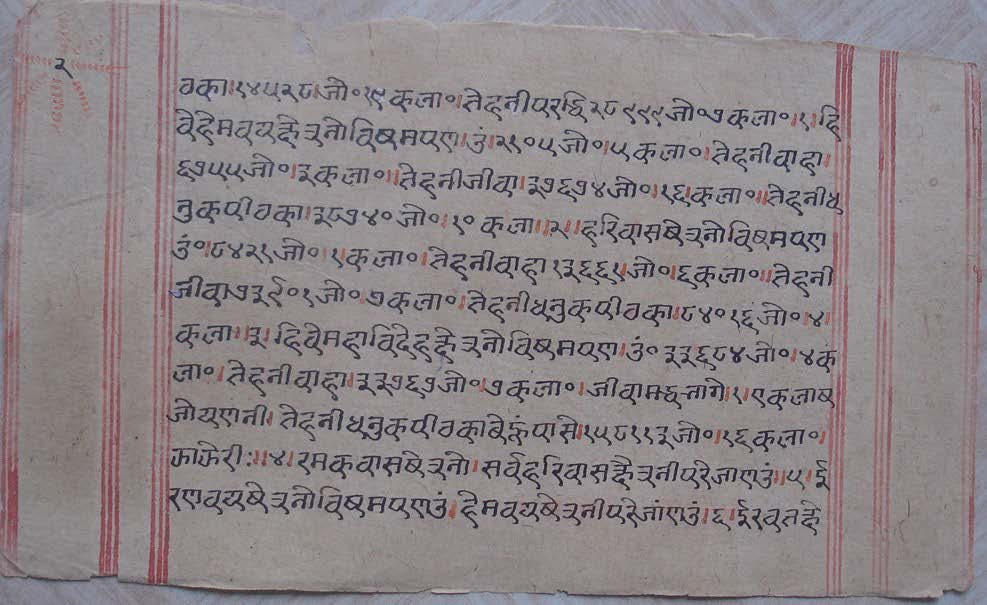 २
ठका।१४५२८।जो०११कला०।तेहनीपरिधि२८९९९जो०७कला०।१।हि
वेहेमवयक्षेत्रनोविषमपण।उं।२१०५जो०।५कला०।तेहनीवाहा।
६७५५जो०।३कला०।।तेहनीजीवा।३७६७४जो०।१६कला०।।तेहनीध
नुकपीठका।३८७४०जो०।१०कला।।२।हरिवासषेत्रनोविषमपण
उं०८४२१जो०।१कला०।तेहनीवाहा१३६६१जो०।६कला०।।तेहनी
जीवा७३९०१जो०७कला०।तेहनीधनुकपीठका।८४०१६जो०।४।
कला।।३।हिवेमहाविदेहक्षेत्रनोविषमपण।उं०३३६८४जो०।४क
ला०।तेहनीवाहा।३३७६७जो०७कला०।जीवामध्यभागे।१।एकलाष
जोयणनी।तेहनीधनुकपीठकाबेहुंपासे।१५८११३जो०।१६कला०।
झाझेरी:।।४।रमकवासषेत्रनो।सर्वहरिवासक्षेत्रनीपरेजाणउं।।५।ई
रणवयषेत्रनोविषमपणउं।हेमवयषेत्रनीपरेजांणउं।६।ईरवतक्षे